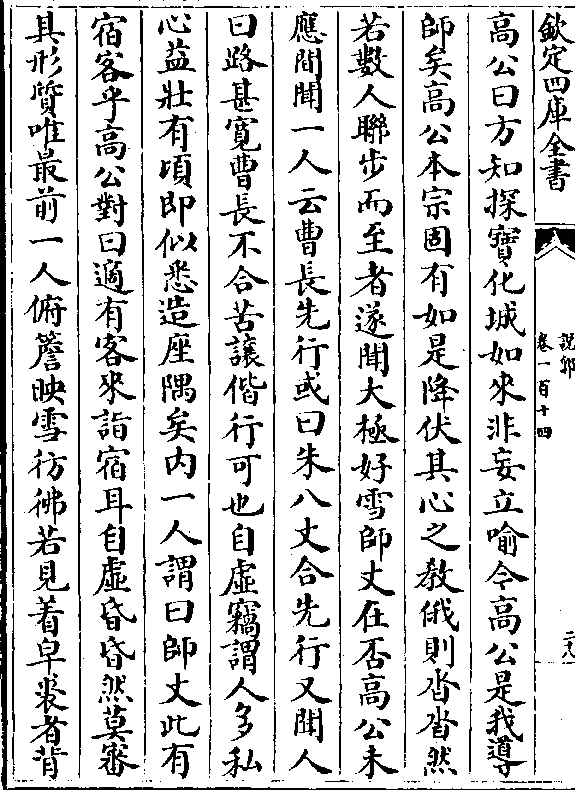 欽定四庫全書
說郛
卷一百十四
高公曰方知探寶化城如來非妄立喻今高公是我導
師矣高公本宗固有如是降伏其心之教俄則沓沓然
若數人聯步而至者遂聞大極好雪師丈在否高公未
應間聞一人云曹長先行或曰朱八丈合先行又聞人
曰路甚寛曹長不合苦讓偕行可也自虛竊謂人多私
心益壯有頃即似悉造座隅矣内一人謂曰師丈此有
宿客乎高公對曰適有客來詣宿耳自虛昏昏然莫審
其形質唯最前一人俯簷映雪彷彿若見着皁裘者背